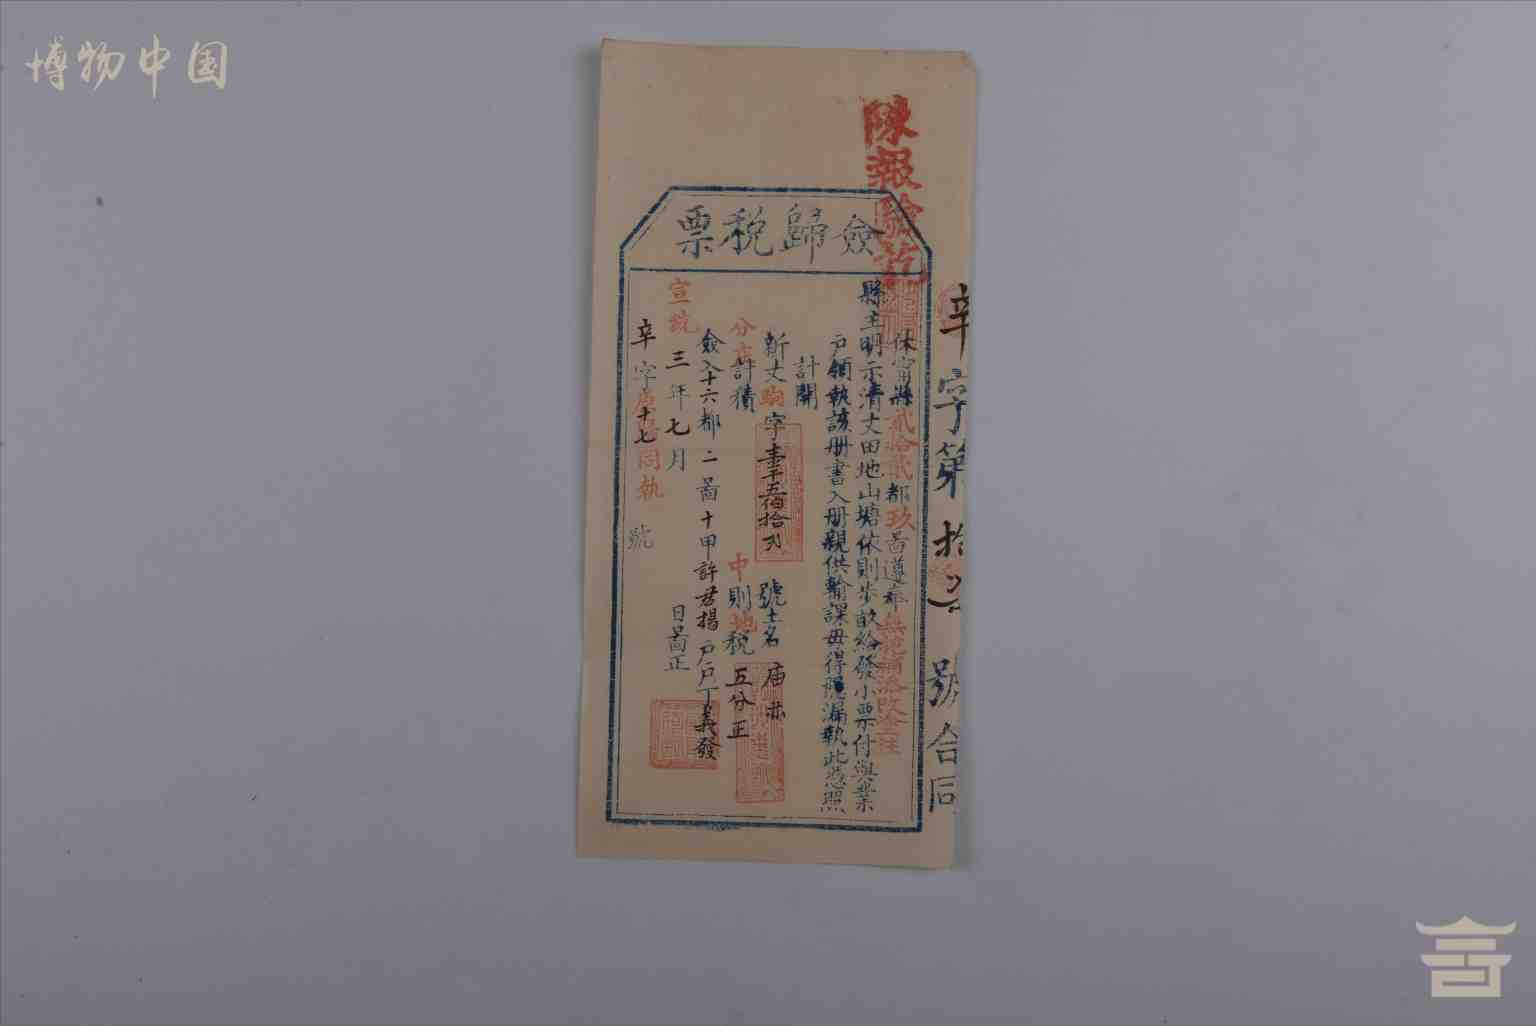 博物中国
陳報驗訖
僉歸稅票
休甯縣貳拾貳都玖啚遵奉
縣主明示清丈田地山塘依則步畝給發小票付與業
戶領執該册書入册親供輸課毋得隱漏執此憑照
計開
新丈 字壹千五佰拾 號土名
分庄計積 中則地稅五分正
僉入十六都二啚十甲許君揚戶戶丁義發
宣統三年七月 日啚正
辛字 十七 同執 號
辛字第拾 號合同